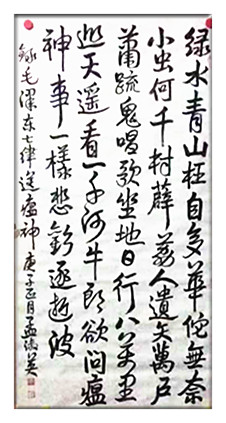 绿水青山枉自多華佗無奈
小虫何千村薜荔人遺矢萬户
蕭疏鬼唱歌坐地日行八萬里
巡天遥看一千河牛郎欲问瘟
神事一樣悲歡逐逝波
錄毛澤东七律送瘟神 庚子正月孟淑英